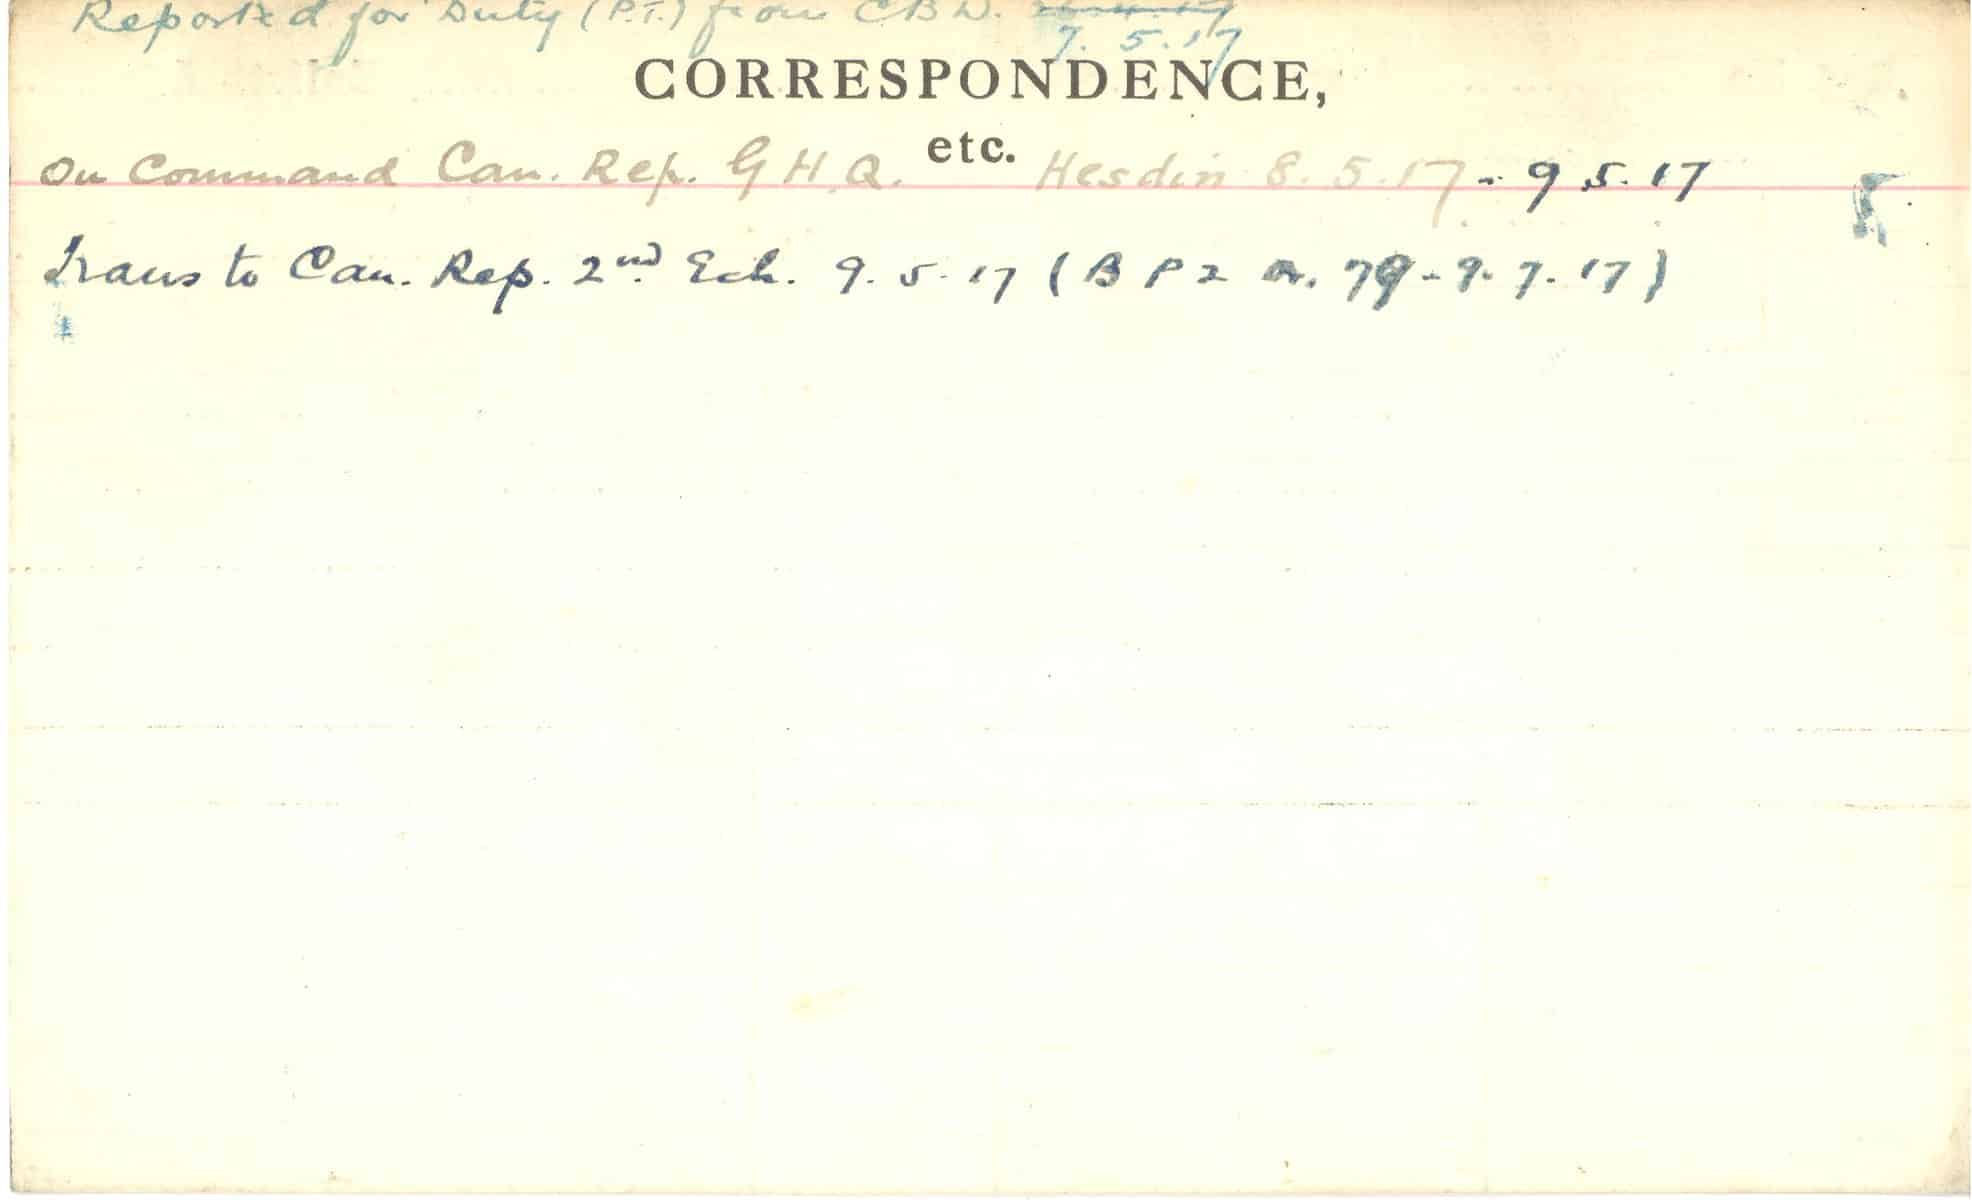 Reported for Duty (P.T.) from C B D.
7. 5. 17
CORRESPONDENCE,
etc.
On Command Can. Rep. G H.Q. Hesdin 8. 5. 17 - 9.5.17
Trans to Can. Rep. 2nd Ech. 9. 5. 17 (B P 2 79 - 9. 7. 17)